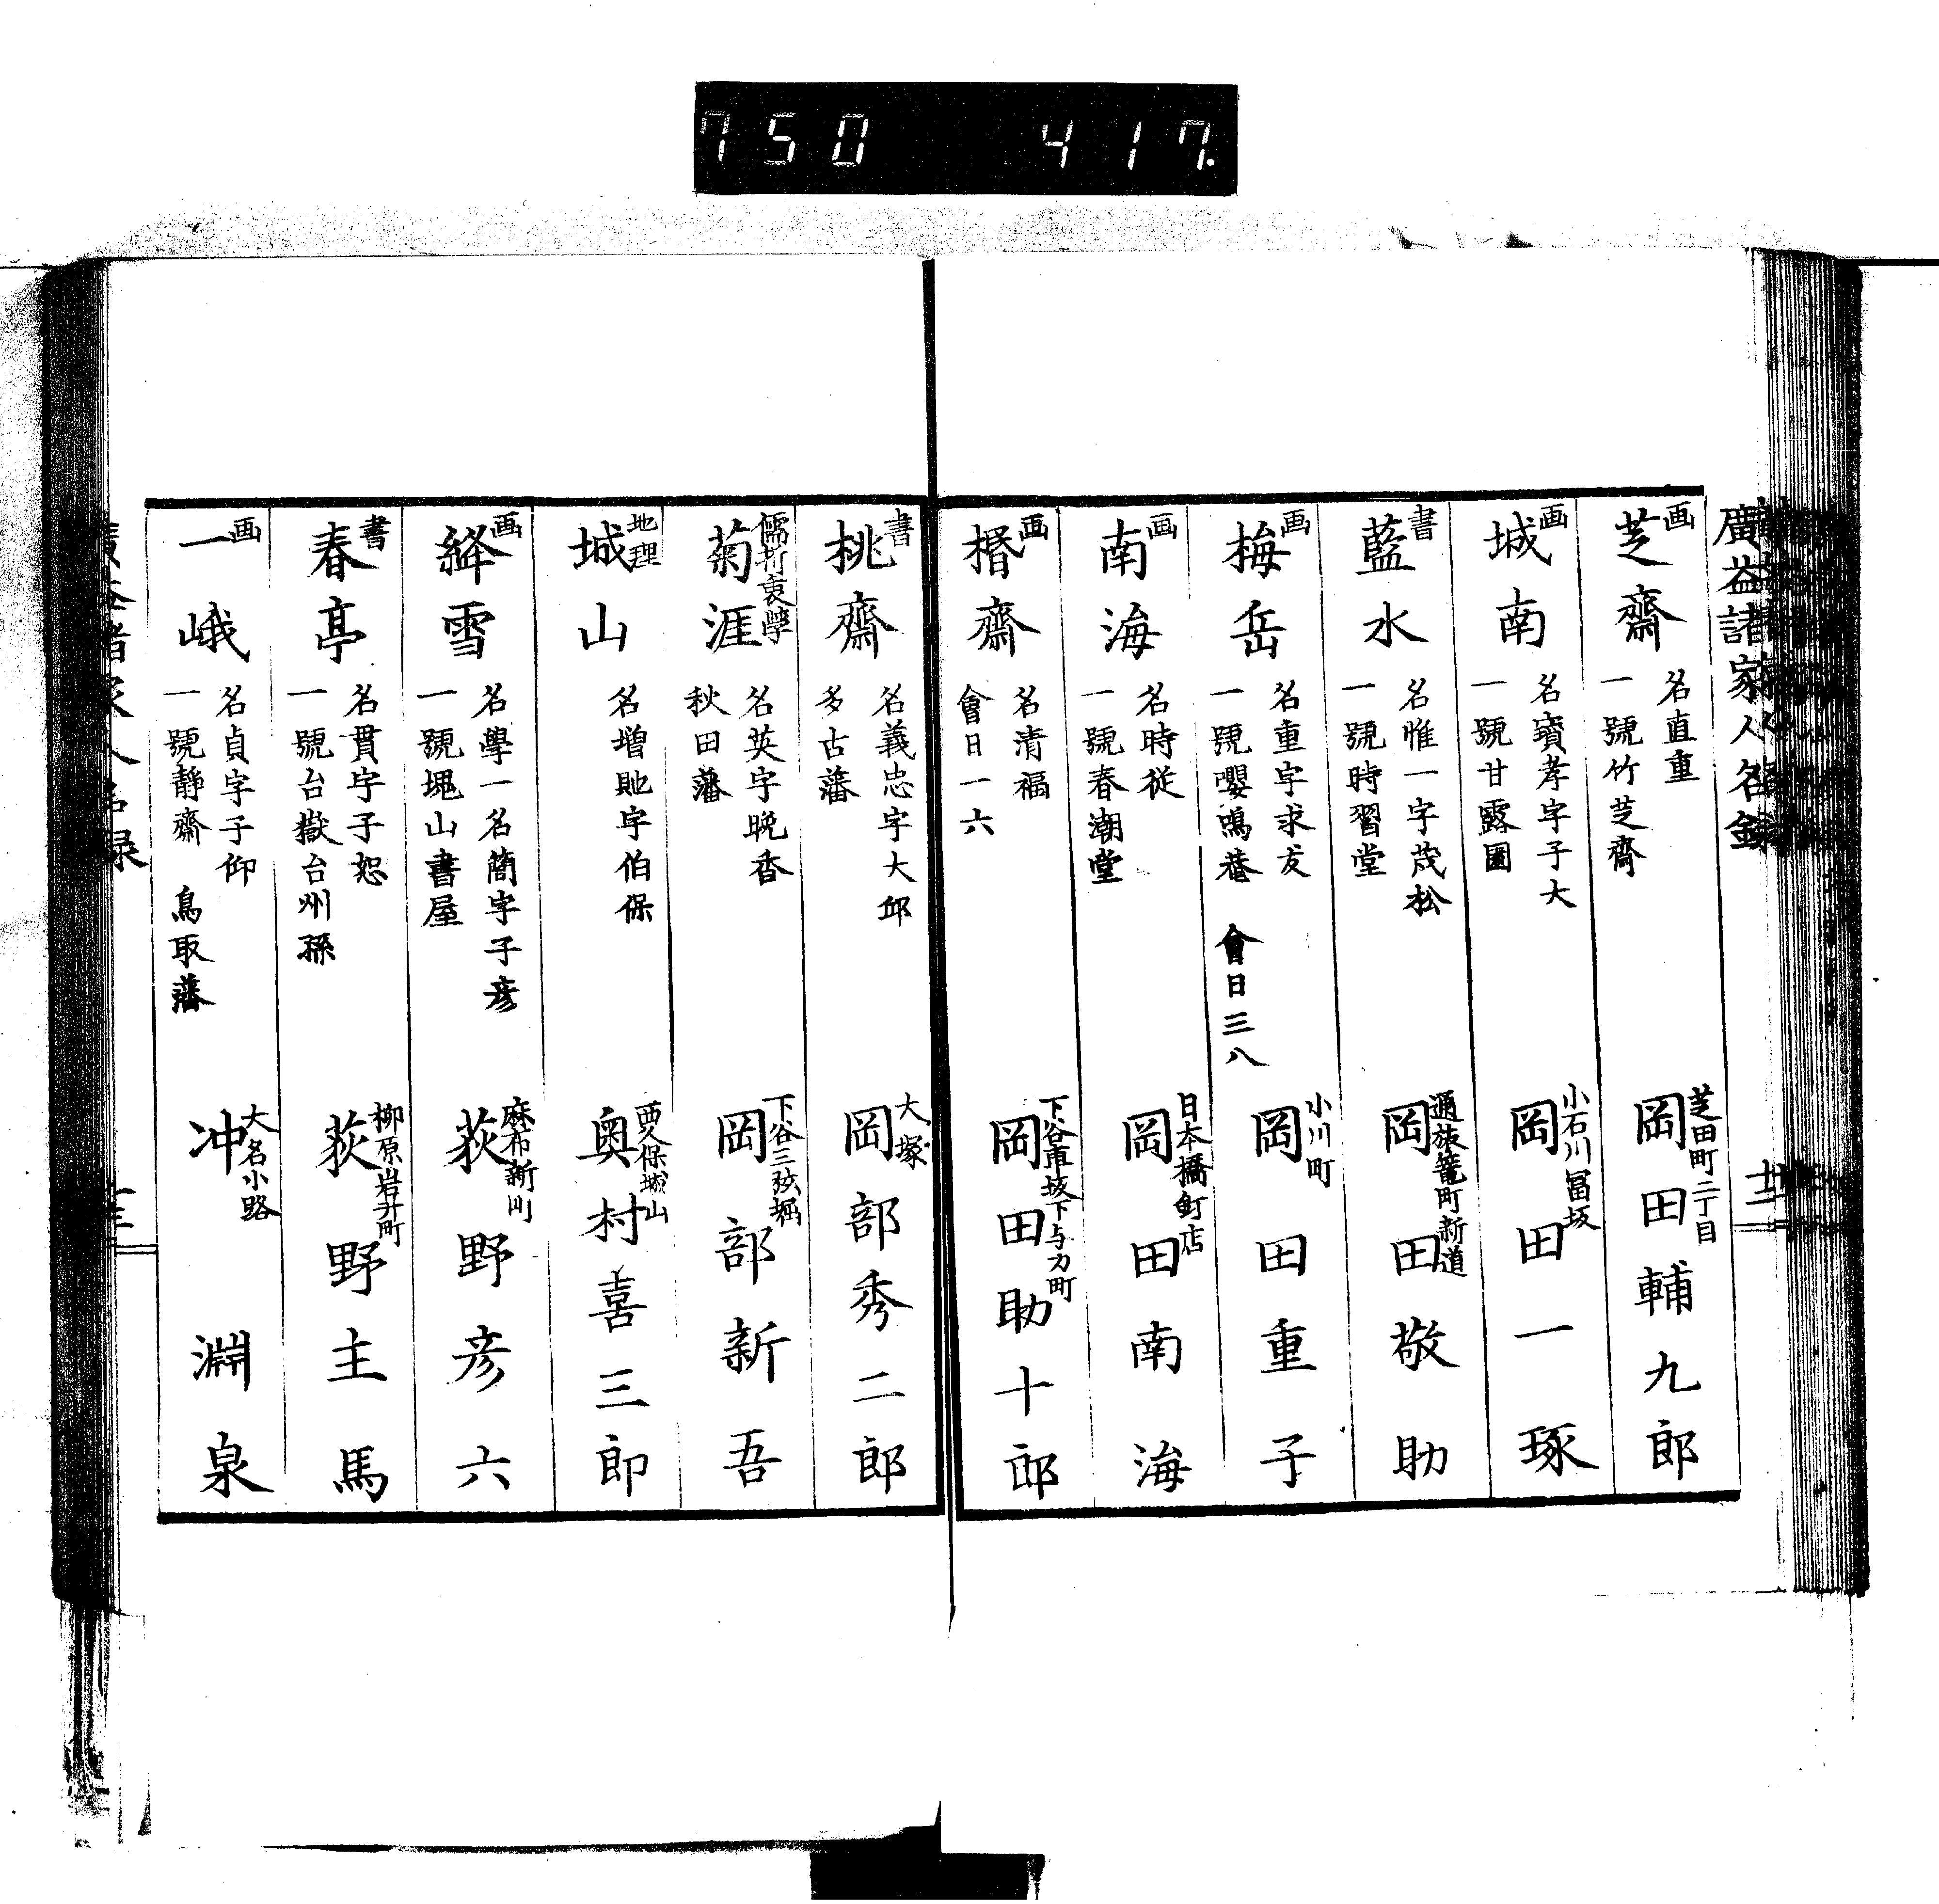 750 417.
廣益諸家人名録
画
芝齋
名直重
一號竹芝齋
芝田町二丁目
岡田輔九郎
画
城南
名寶孝字子大
一號甘露園
小石川冨坂
岡田一琢
書
藍水
名惟一字茂松
一號時習堂
通旅篭町新道
岡田敬助
画
梅岳
名重字求友
一號嚶鳴巷 會日三八
小川町
岡田重子
画
南海
名時従
一號春潮堂
日本橋釘店
岡田南海
画
楿齋
名清福
會日一六
下谷車坂下与力町
岡田助十郎
十二
書
桃齋
名義忠字大邱
多古藩
大塚
岡部秀二郎
儒折衷學
菊涯
名英字晩香
秋田藩
下谷三弦堀
岡部新吾
地理
城山
名増貤字伯保
西久保城山
奥村喜三郎
画
絳雪
名學一名簡字子彦
一號堰山書屋
麻布新川
荻野彦六
書
春亭
名貫字子恕
一號台嶽台州孫
柳原岩井町
荻野主馬
画
一峨
名貞字子仰
一號靜齋 鳥取藩
大名小路
冲淵泉